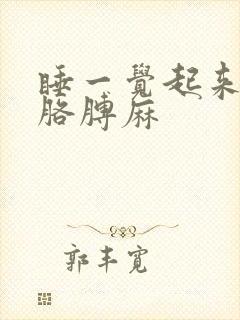 睡一覺起來
胳膊麻
郭丰寬